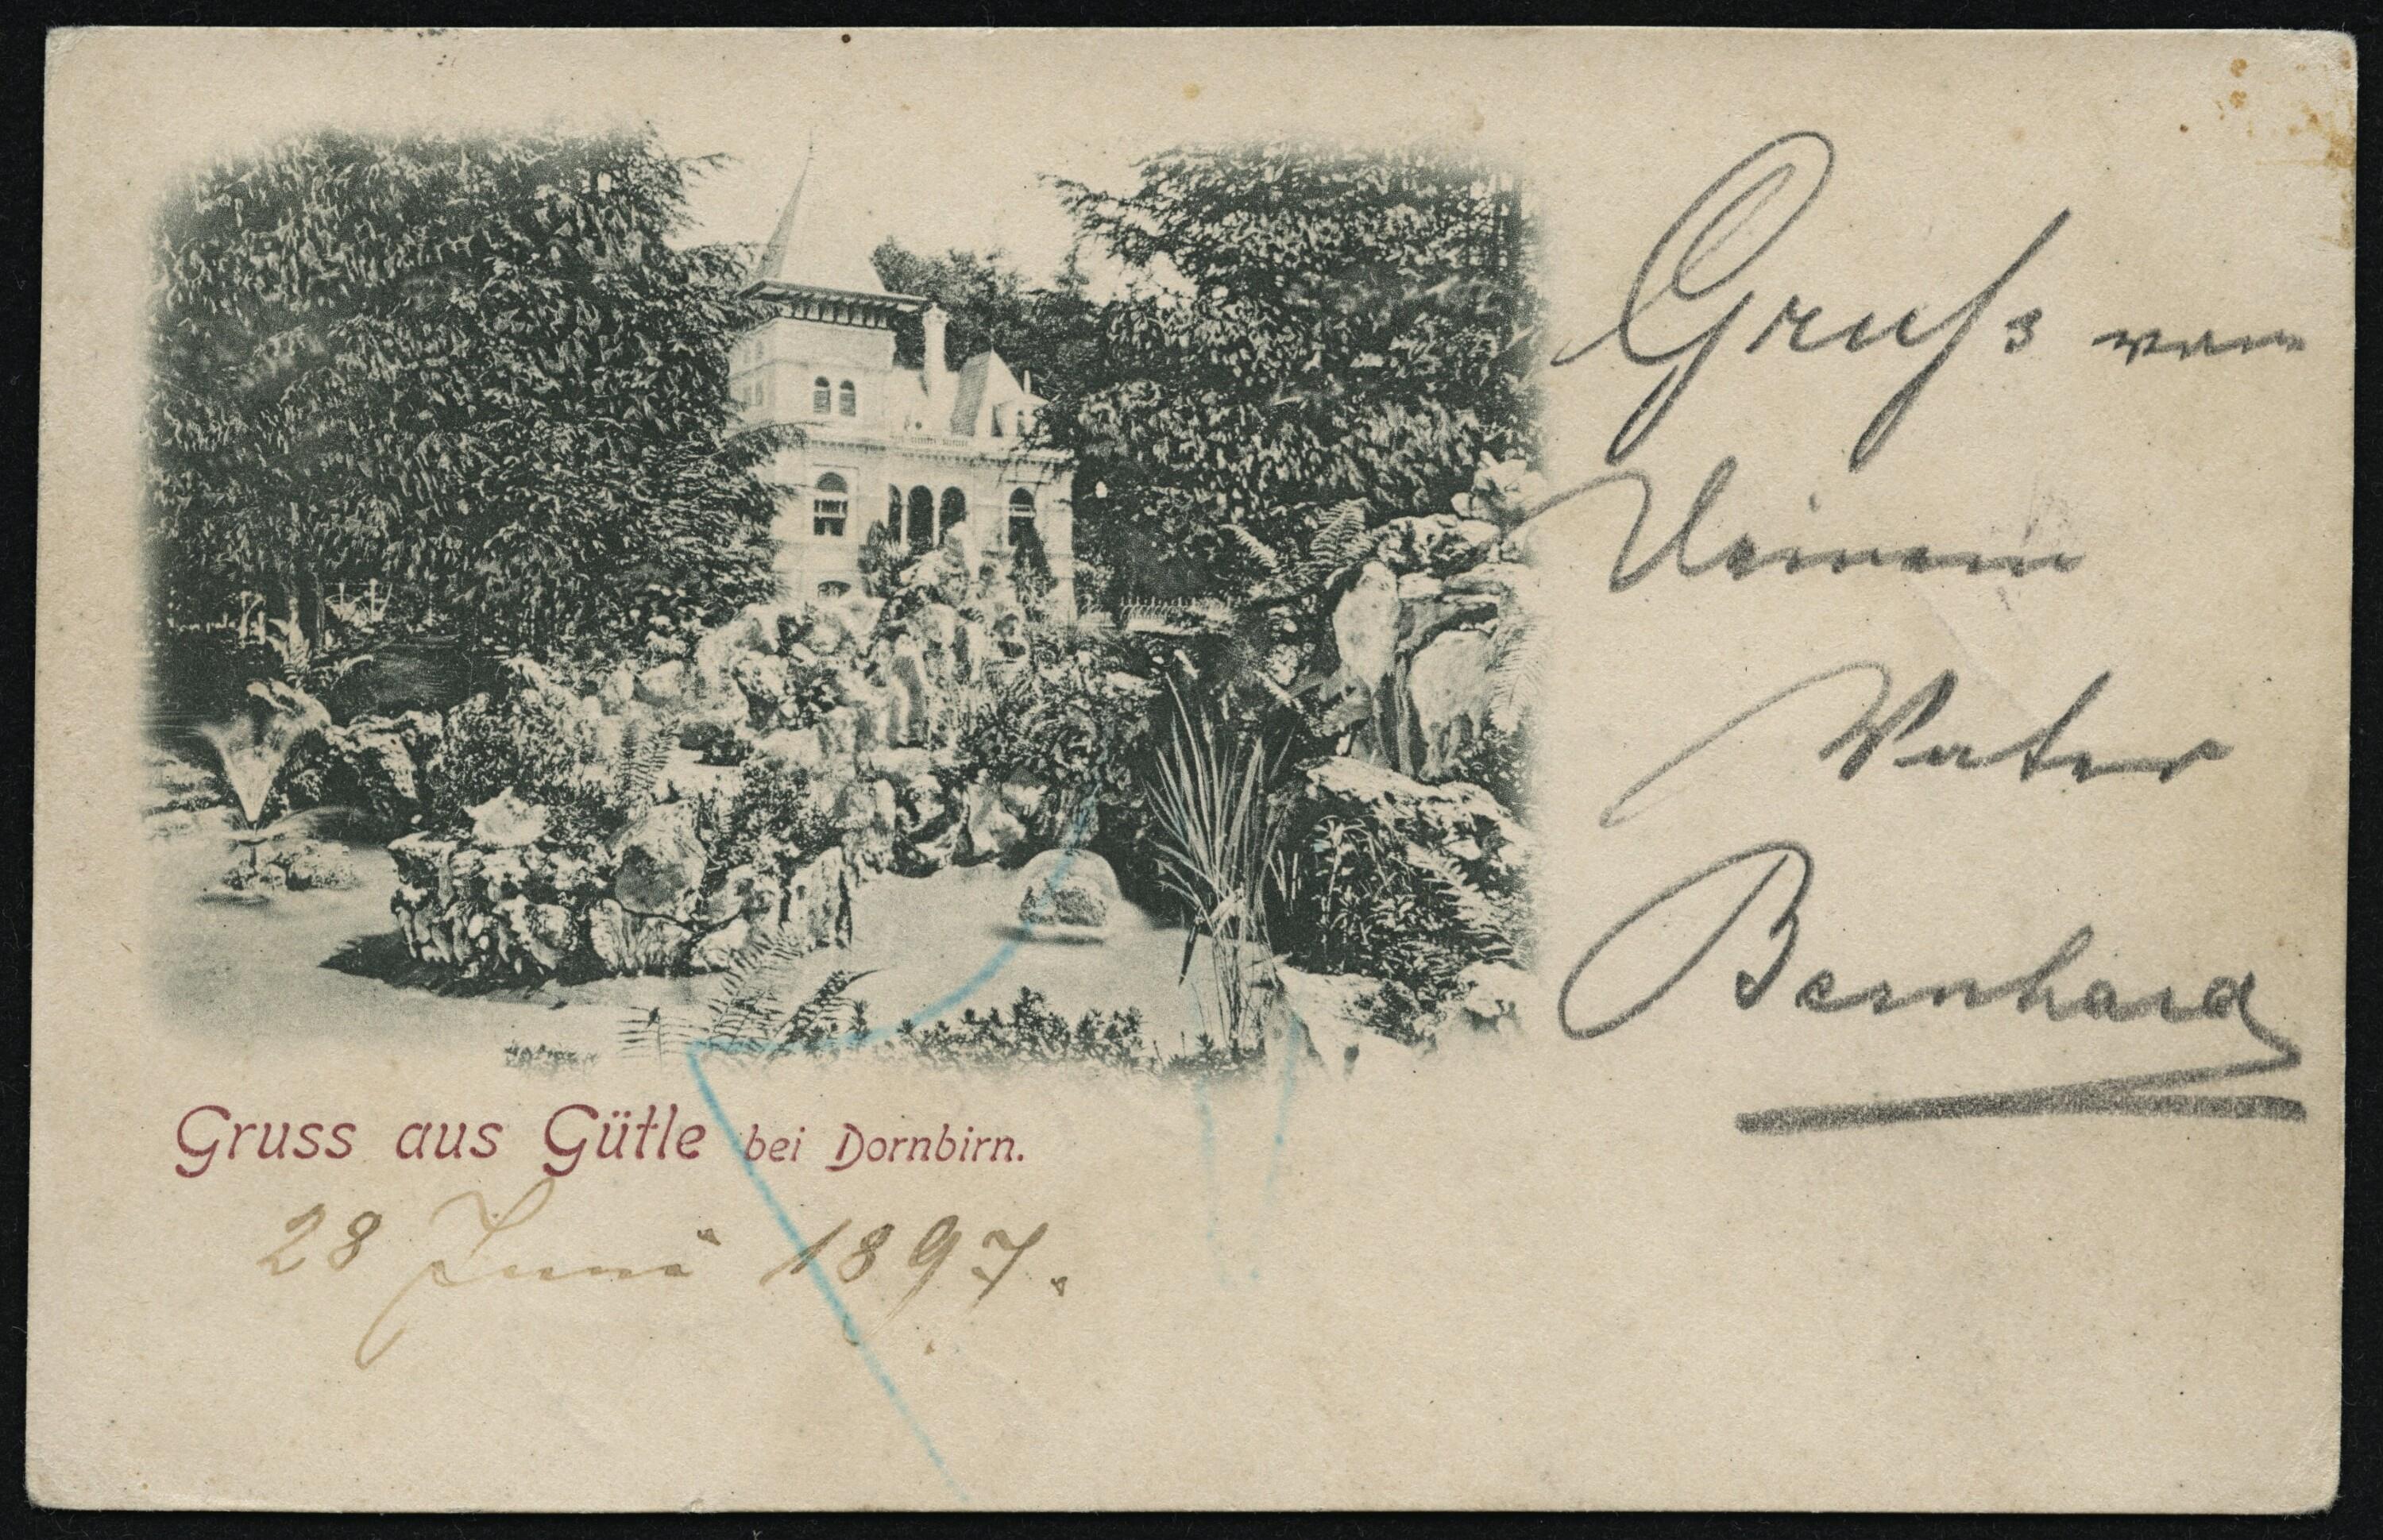 Gruss aus Gütle bei Dornbirn.
28 Juni 1897.
Gruß von
Deinem
Vater
Bernhard